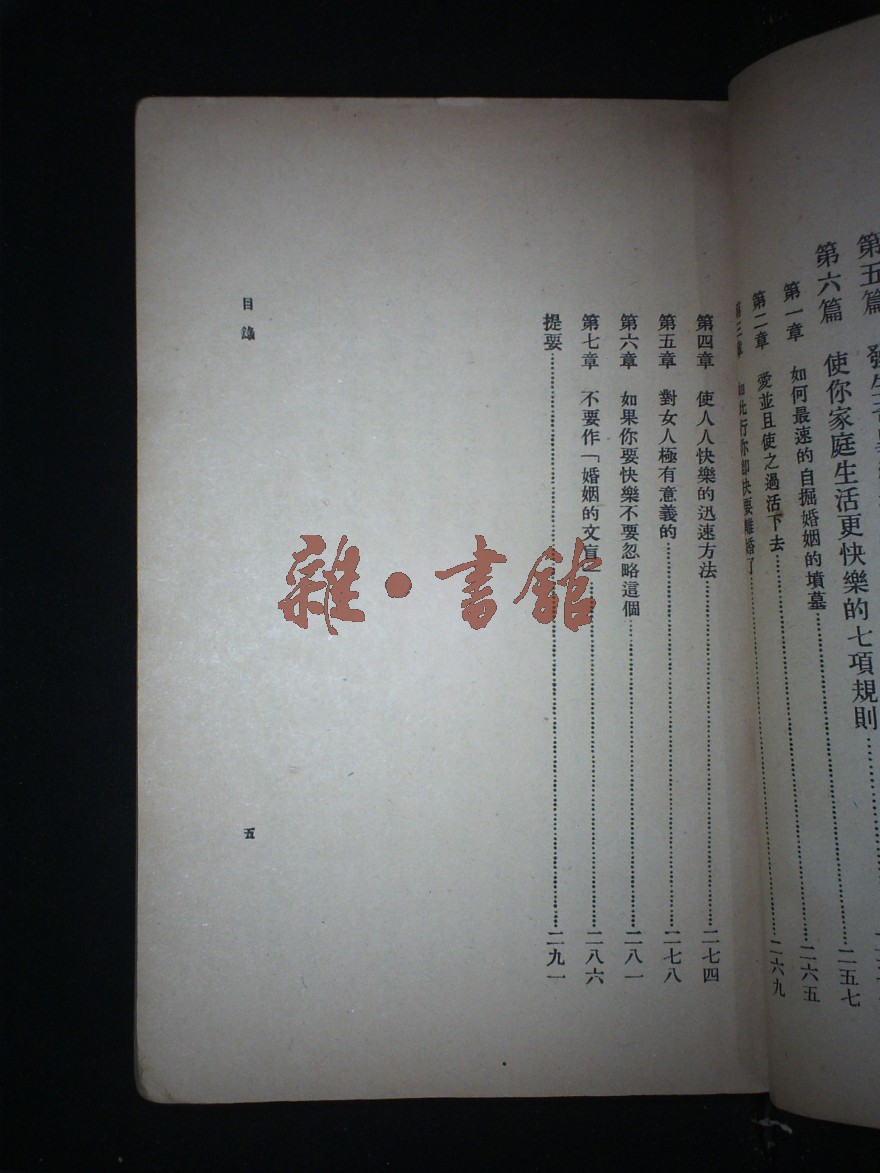 第五篇 發生
第六篇 使你家庭生活更快樂的七項規則
第一章 如何最速的自掘婚姻的墳墓…………二五七
第二章 愛並且使之過活下去…………二六五
第三章 如此行你卽快要離婚了…………二六九
第四章 使人人快樂的迅速方法…………二七四
第五章 對女人極有意義的…………二七八
第六章 如果你要快樂不要忽略這個…………二八一
第七章 不要作「婚姻的文盲…………二八六
提要…………二九一
目錄
五
雜·書館